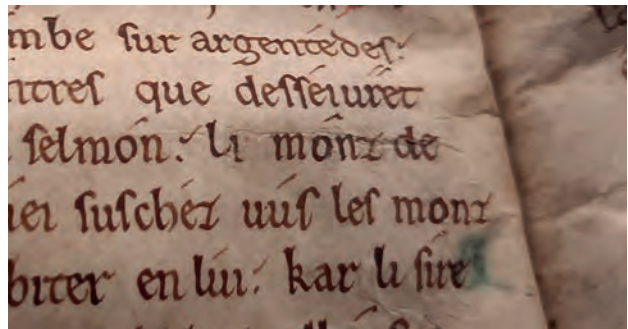 mbe ſur argentedeſ:
itreſ que deſſeiuret
ſelmón: li monz de
iei ſuſchéz uúſ leſ monz
biter en lúi: kar li ſire